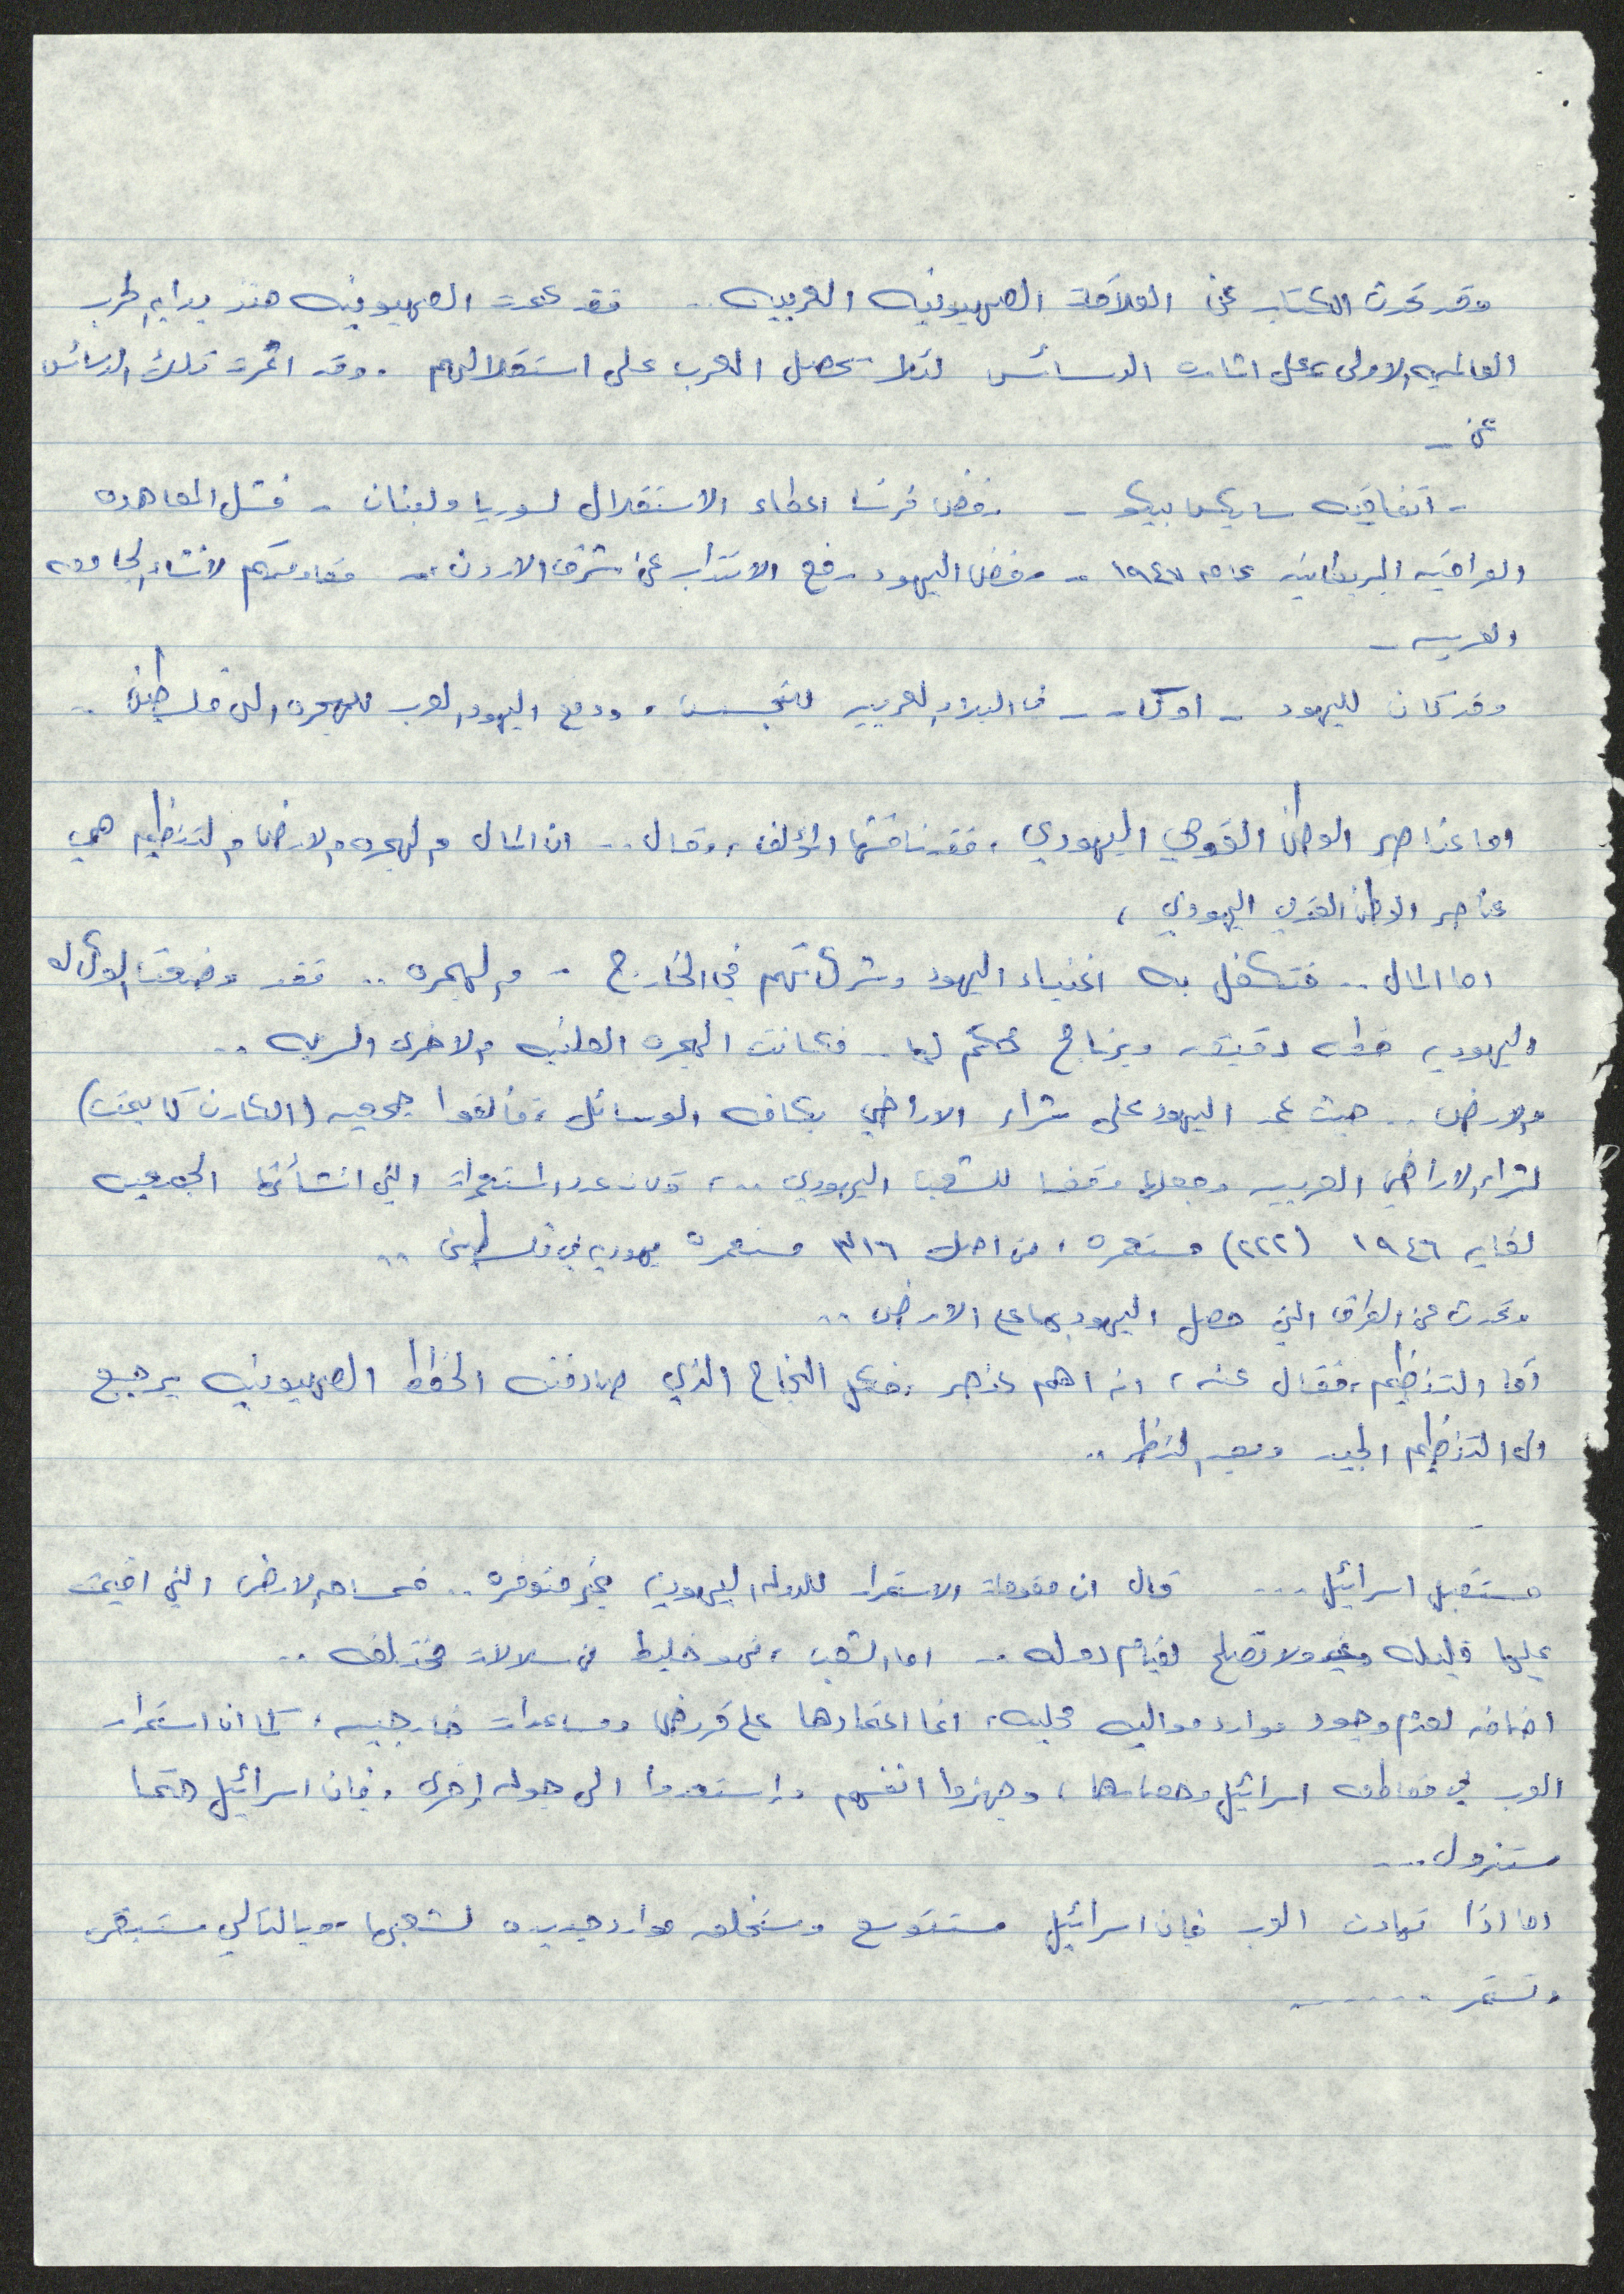 وقد تحدث الكتاب عن العلاقة الصهيونيه العربيه .. فقد عمدت الصهيونيه منذ بدايه الحرب
العالميه الاولى، على اثارة الدسائس لئلا تحصل العرب على استقلالهم . وقد اثمرت تلك الدسائس
عن -
- اتفاقيه سايكس بيكو - رفض فرنسا اعطاء الاستقلال لسوريا ولبنان - فشل المعاهده
العراقيه البريطانيه عام ١٩٤٧ - رفض اليهود رفع الانتداب عن شرق الاردن - مقاومتهم لانشاء الجامعه
العربيه -
وقد كان لليهود - اوكار - في البلاد العربيه للتجسس ، ودفع اليهود العرب للهجره الى فلسطين ..
اما عناصر الوطن القومي اليهودي ، فقد ناقشها المؤلف ، وقال .. ان المال والهجره والارض والتنظيم هي
عناصر الوطن القومي اليهودي ،
اما المال .. فتكفل به اغنياء اليهود وشركاتهم في الخارج - والهجره .. فقد وضعت الوكاله
اليهوديه خطه دقيقه وبرنامج محكم لها .. فكانت الهجره العلنيه والاخرى السريه ..
والارض .. حيث عمد اليهود على شراء الاراضي بكافه الوسائل ، فألفوا جمعيه (الكارن كايمت)
لشراء الاراضي العربيه وجعلها وقفا للشعب اليهودي .. ، وكان عدد المستعمرات التي انشأتها الجمعيه
لغايه ١٩٤٦ (٢٢٢) مستعمره ، من اصل ٣١٦ مستعمرة يهوديه في فلسطين ..
وتحدث عن الطرق التي حصل اليهود بها على الارض ..
أما التنظيم ، فقال عنه ، انه اهم عنصر ، فكل النجاح الذي صادفته الخطط الصهيونيه يرجع
الى التنظيم الجيد وبعد النظر ..
مستقبل اسرائيل ... قال ان مقومات الاستمرار للدوله اليهوديه غير متوفره .. فمساحه الارض التي اقيمت
عليها قليله ولا تصلح لقيام دوله .. اما الشعب ، فهو خليط من سلالات مختلفه ..
اضافه لعدم وجود موارد مواليه محليه ، انما اعتمادها على قروض ومساعدات خارجيه ، كما ان استمرار
العرب في مقاطعه اسرائيل وحصارها ، وجهزوا انفسهم واستعدوا الى جوله إخرى ، فان اسرائيل حتما
ستزول ...
اما اذا تهادن العرب فان اسرائيل ستتوسع وستخلق موارد جديده لشعبها ، وبالتالي ستبقى
وتستمر ......